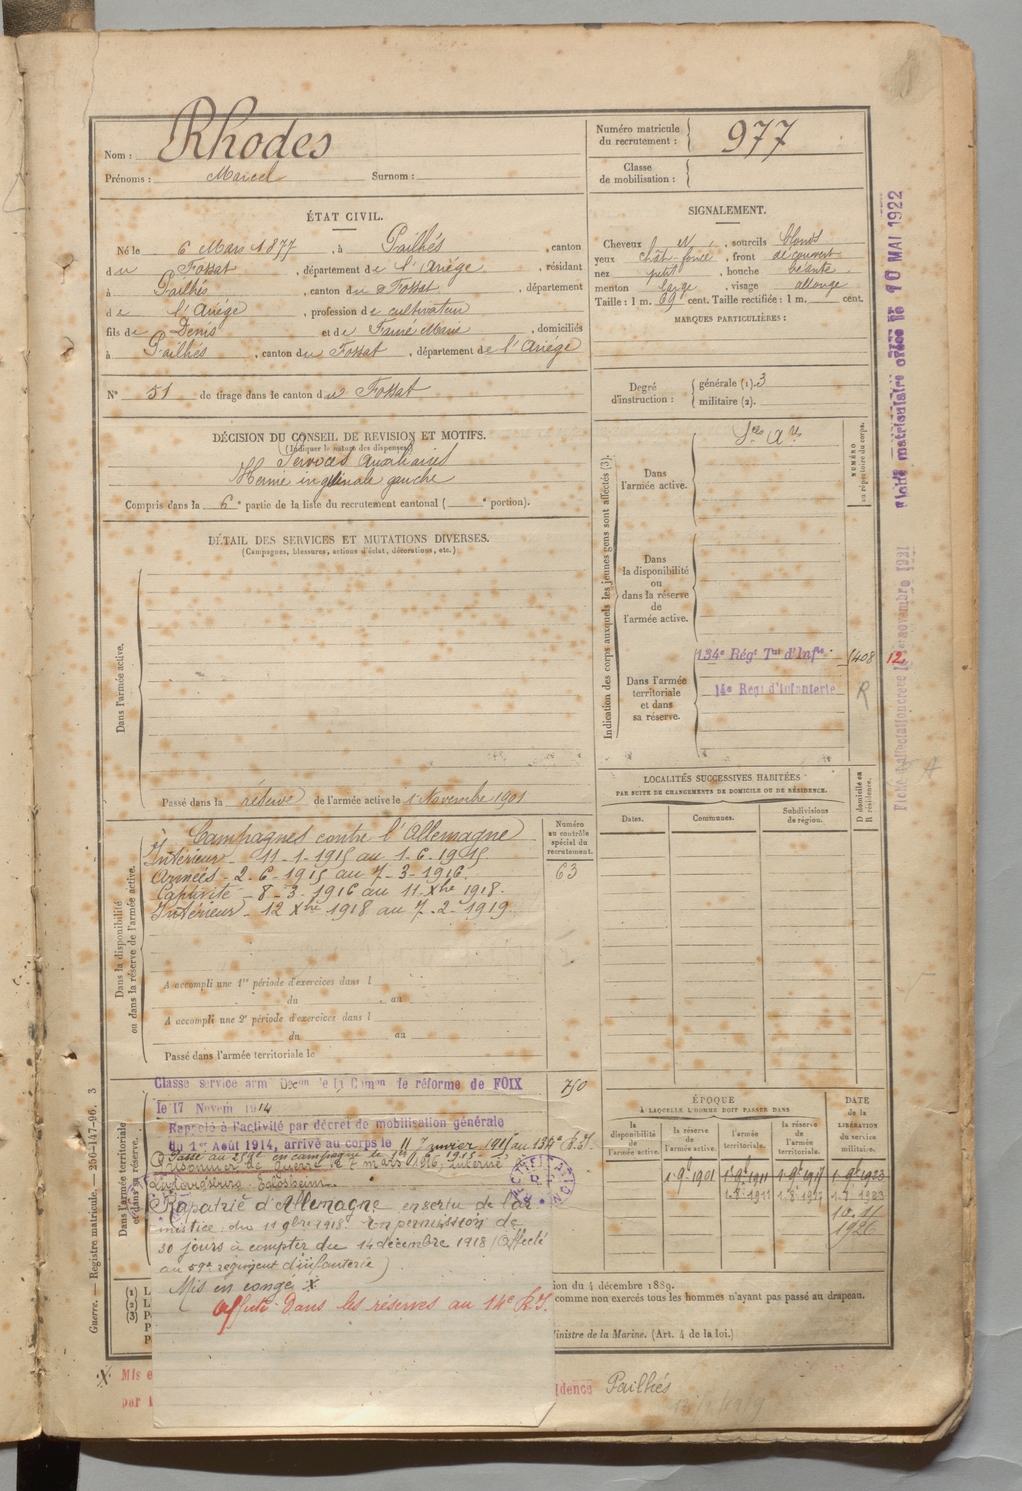 Nom : Rhodes
Prénoms : Marcel Surnom :
Numéro matricule du recrutement : 977
Classe de mobilisation :
ÉTAT CIVIL.
Né le 6 Mars 1877, à Pailhés, canton
du Fossat, département de l'Ariége, résidant
à Pailhés, canton du Fossat, département
de l'Ariége, profession de cultivateur
fils de Denis et de Faure Marie, domiciliés
à Pailhés, canton du Fossat, département de l'Ariége
N° 51 de tirage dans le canton du Fossat
SIGNALEMENT.
Cheveux, sourcils blonds
yeux chât. foncé, front découvert
nez petit, bouche béante
menton large, visage allongé
Taille : 1 m. 69 cent. Taille rectifiée : 1 m. cent.
MARQUES PARTICULIÈRES :
Degré d'instruction : générale (1). 3
militaire (2).
DÉCISION DU CONSEIL DE REVISION ET MOTIFS.
(Indiquer la nature des dispenses)
Services Auxiliaires
Hernie inguinale gauche
Compris dans la 6e partie de la liste du recrutement cantonal ( e portion).
DÉTAIL DES SERVICES ET MUTATIONS DIVERSES.
(Campagnes, blessures, actions d'éclat, décorations, etc.)
Dans l'armée active.
Passé dans la réserve de l'armée active le 1er Novembre 1901
Indication des corps auxquels les jeunes gens sont affectés (3).
NUMÉRO au répertoire du corps.
Dans l'armée active.
Dans la disponibilité ou dans la réserve de l'armée active.
Dans l'armée territoriale et dans sa réserve.
134e Régt Tal d'Infie 1408 12
14e Régt d'Infanterie R
Fiche matriculaire créée le 10 MAI 1922
LOCALITÉS SUCCESSIVES HABITÉES
PAR SUITE DE CHANGEMENTS DE DOMICILE OU DE RÉSIDENCE.
D domicile ou R résidence.
Dates. Communes. Subdivisions de région.
Dans la disponibilité ou dans la réserve de l'armée active.
Numéro au contrôle spécial du recrutement.
63
Campagnes contre l'Allemagne
Intérieur - 11-1-1915 au 1-6-1915
Armées - 2-6-1915 au 7-3-1916.
Captivité - 8-3-1916 au 11 Xbre 1918.
Intérieur - 12 Xbre 1918 au 7-2-1919.
A accompli une 1re période d'exercices dans l
du au
A accompli une 2e période d'exercices dans l
du au
Passé dans l'armée territoriale le
Dans l'armée territoriale et dans sa réserve.
750
Classe service armé Décon de la Comon de réforme de FOIX
le 17 Novem 1914
Rappelé à l'activité par décret de mobilisation générale
du 1er Août 1914, arrivé au corps le 11 Janvier 1915 au 134e R.I
Passé au 259e en campagne le
Prisonnier de Guerre le 7 mars 1916, interné
Ludwigsburg
Rapatrié d'Allemagne en vertu de l'ar
mistice du 11 9bre 1918. En permission de
30 jours à compter du 14 décembre 1918 (Affecté
au 59e régiment d'infanterie)
Mis en congé X
Affecté dans les réserves au 14e R.I.
ÉPOQUE
À LAQUELLE L'HOMME DOIT PASSER DANS
DATE de la LIBÉRATION du service militaire.
la disponibilité de l'armée active. la réserve de l'armée active. l'armée territoriale. la réserve de l'armée territoriale.
1 9e 1901 1 9e 1911 1 9e 1917 1 9e 1923
1.8.1911 1.8.1917 1.8.1923
10. 11
1926
(1)
(2)
(3)
ion du 4 décembre 1889.
comme non exercés tous les hommes n'ayant pas passé au drapeau.
Ministre de la Marine. (Art. 4 de la loi.)
Guerre. — Registre matricule. — 256-147-96. 3
X Mis e
par l
idence Pailhés